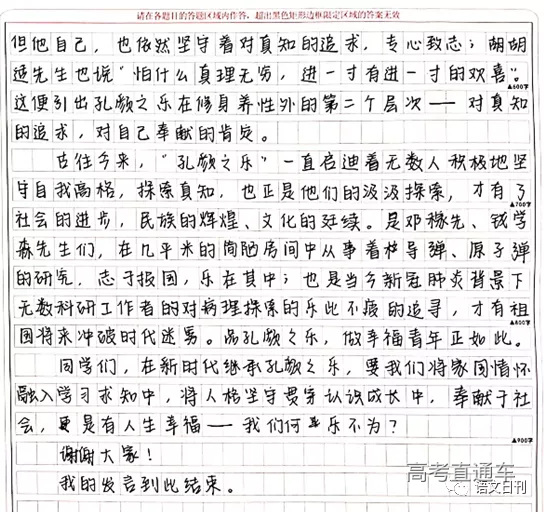 请在各题目的答题区域内作答，超出黑色矩形边框限定区域的答案无效
但他自己，也依然坚守着对真知的追求，专心致志；胡胡
适先生也说“怕什么真理无穷，进一寸有进一寸的欢喜”。
▲600字
这便引出孔颜之乐在修身养性外的第二个层次——对真知
的追求，对自己奉献的肯定。
古往今来，“孔颜之乐”一直启迪着无数人积极地坚
守自我高格，探索真知，也正是他们的汲汲探索，才有了
▲700字
社会的进步，民族的辉煌、文化的延续。是邓稼先、钱学
森先生们，在几平米的简陋房间中从事着核导弹、原子弹
的研究，志于报国，乐在其中；也是当今新冠肺炎背景下
无数科研工作者的对病理探索的乐此不疲的追寻，才有祖
▲800字
国将来冲破时代迷雾。品孔颜之乐，做幸福青年正如此。
同学们，在新时代继承孔颜之乐，要我们将家国情怀
融入学习求知中，将人格坚守贯穿认识成长中，奉献于社
会，更是有人生幸福——我们何乐不为？
▲900字
谢谢大家！
我的发言到此结束。
高考直通车
语文日刊